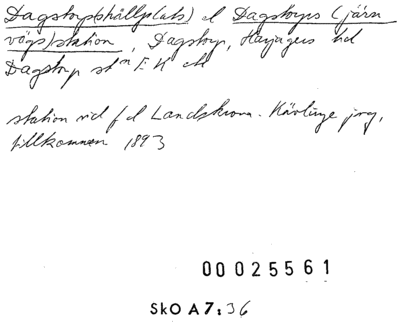 Dagstorp(shållplats) el Dagstorps (järn
vägs)station, Dagstorp, Harjagers hd
Dagstorp stn E K
station vid f d Landskrona - Kävlinge jvg,
tillkommen 1893
00025561
SkO A7:36